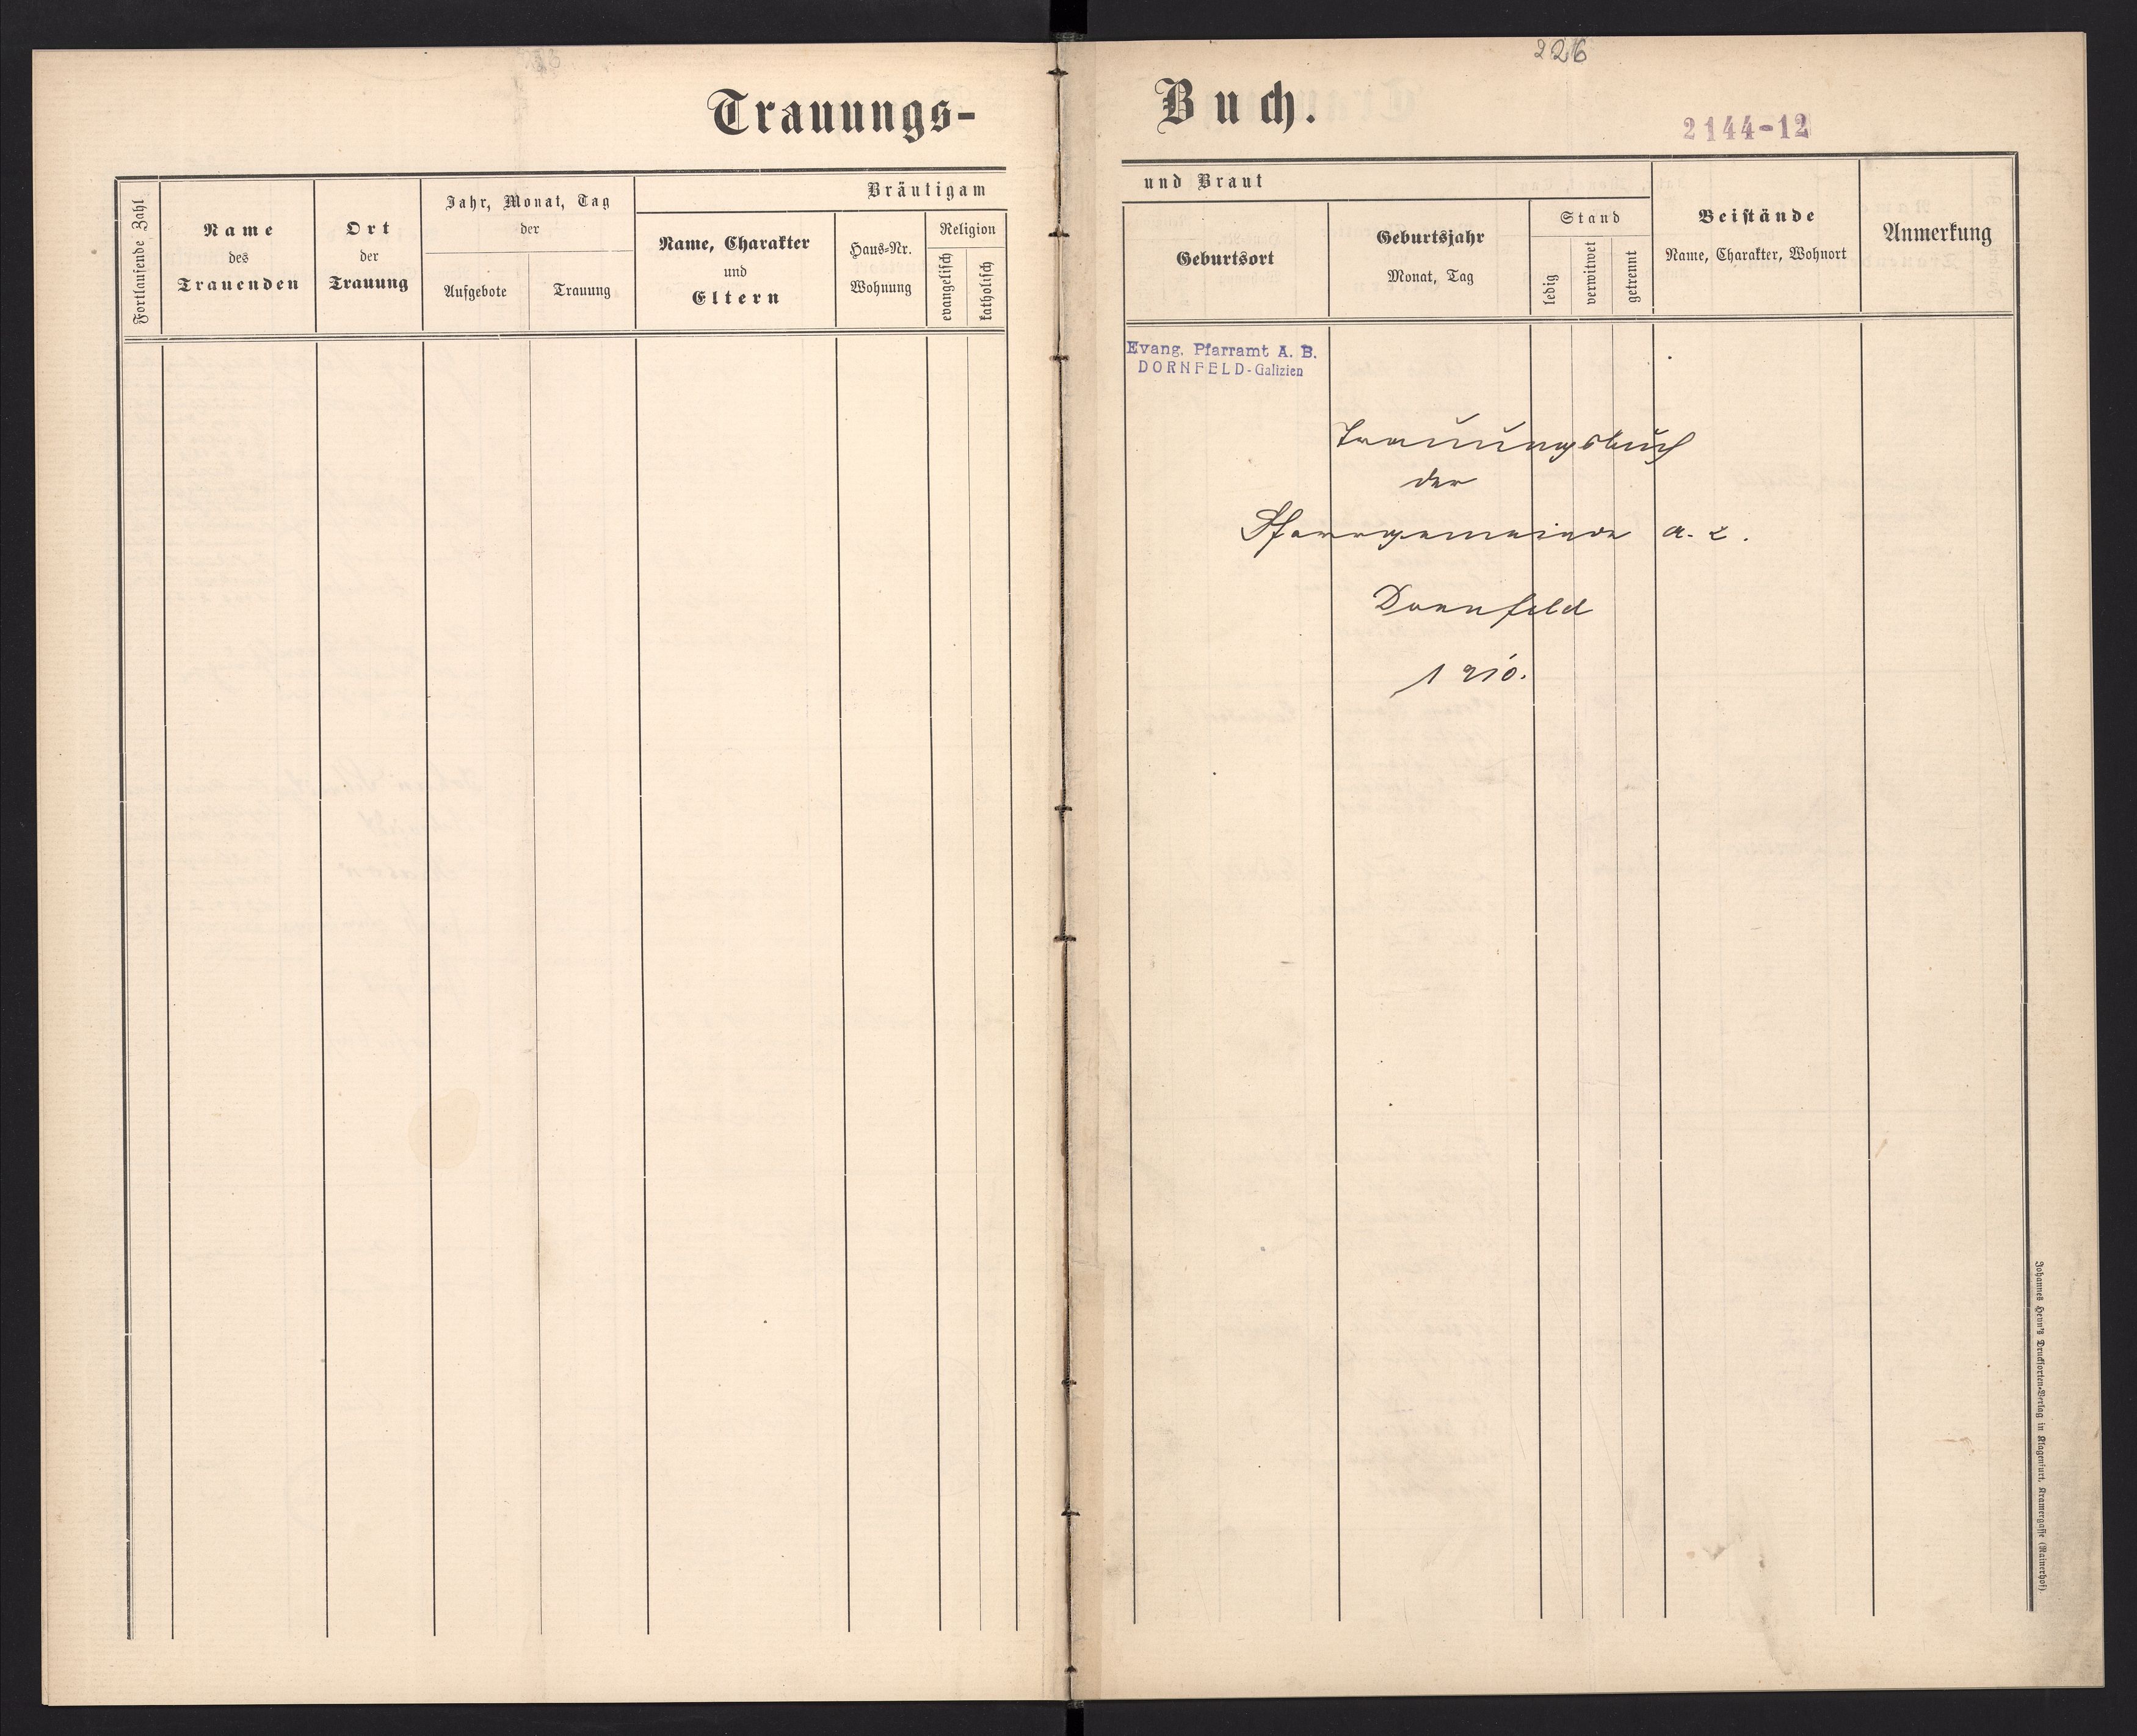 226
Trauungs-Buch.
2144-12
Fortlaufende Zahl
Name
des
Trauenden
Ort
der
Trauung
Jahr, Monat, Tag
der
Aufgebote
Trauung
Bräutigam
Name, Charakter
und
Eltern
Haus-Nr.
Wohnung
Religion
evangelisch
katholisch
und Braut
Geburtsort
Geburtsjahr
Monat, Tag
Stand
ledig
verwitwet
getrennt
Beistände
Name, Charakter, Wohnort
Anmerkung
Evang. Pfarramt A. B.
DORNFELD-Galizien
Trauungsbuch
der
Pfarrgemeinde
Dornfeld
1910.
Johannes Heyn's Drucksorten-Verlag in Klagenfurt, Kramergasse (Rainerhof).